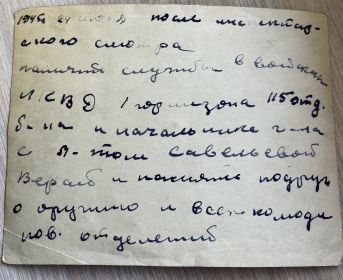 1945 г 24 июня после инспектор-
ского смотра
памяти службы в войсках
НКВД 1 горнизона 115 отд.
б-на и начальнике
с Савельевой
Верай и памяти подруги
о оружию и всем команди
пов. отделений